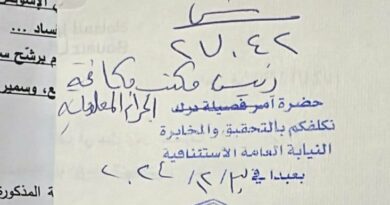 ٢٧٠٤٢
رئيس مكتب مكافحة
الجرائم المعلوماتية
حضرة آمر فصيلة درك
نكلفكم بالتحقيق والمخابرة
النيابة العامة الاستئنافية
بعبدا في ٣٠/١٢/٢٠٢٤
يرشّح
وسمير
المذكورة